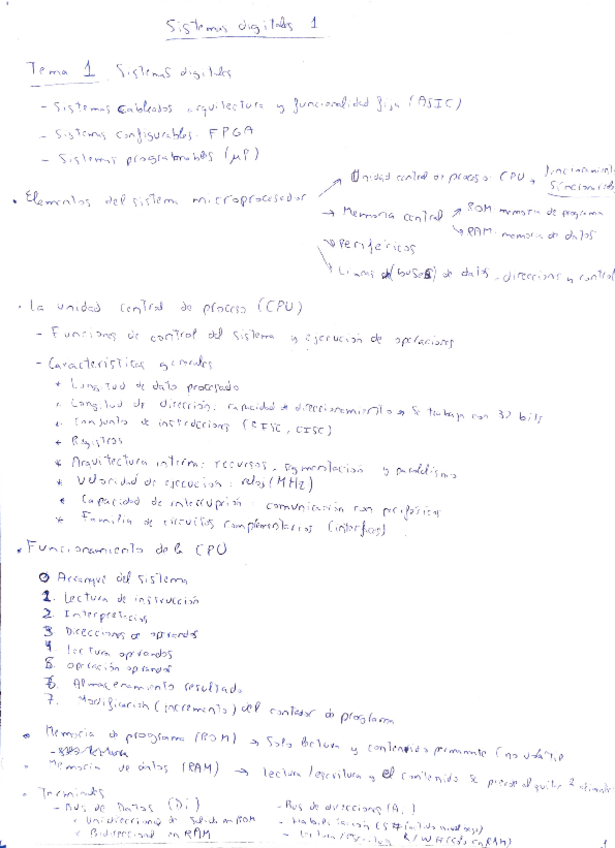 Sistemas digitales 1
Tema 1 Sistemas digitales
- Sistemas cableados arquitectura y funcionalidad fija (ASIC)
- Sistemas configurables FPGA
- Sistemas programables (μP)
• Elementos del sistema microprocesador
→ Unidad central de proceso: CPU →
→ Memoria central → ROM: memoria de programa
→ RAM: memoria de datos
→ Periféricos
→ (buses) de datos, direcciones y control
• La unidad central de proceso (CPU)
- Funciones de control del sistema y ejecución de operaciones
- Características generales
* Longitud de dato procesado
* Longitud de dirección: capacidad de direccionamiento → Se trabaja con 32 bits
* Conjunto de instrucciones (RISC, CISC)
* Registros
* Arquitectura interna: recursos, segmentación y paralelismo
* Velocidad de ejecución: reloj (MHz)
* Capacidad de interrupción: comunicación con periféricos
* Familia de circuitos complementarios (interfaces)
• Funcionamiento de la CPU
0 Arranque del sistema
1. Lectura de instrucción
2. Interpretación
3 Direcciones de operandos
4 lectura operandos
5. operación operandos
6. Almacenamiento resultado
7. Modificación (incremento) del contador de programa
• Memoria de programa (ROM) → Solo lectura y contenido permanente (no
• Memoria de datos (RAM) → lectura/escritura y el contenido se pierde al quitar
• Terminales
- Bus de Datos (Di)
* Unidireccional de salida en ROM
* Bidireccional en RAM
- Bus de direcciones (Ai)
- Habilitación
- Lectura/escritura R/W (Sólo en RAM)